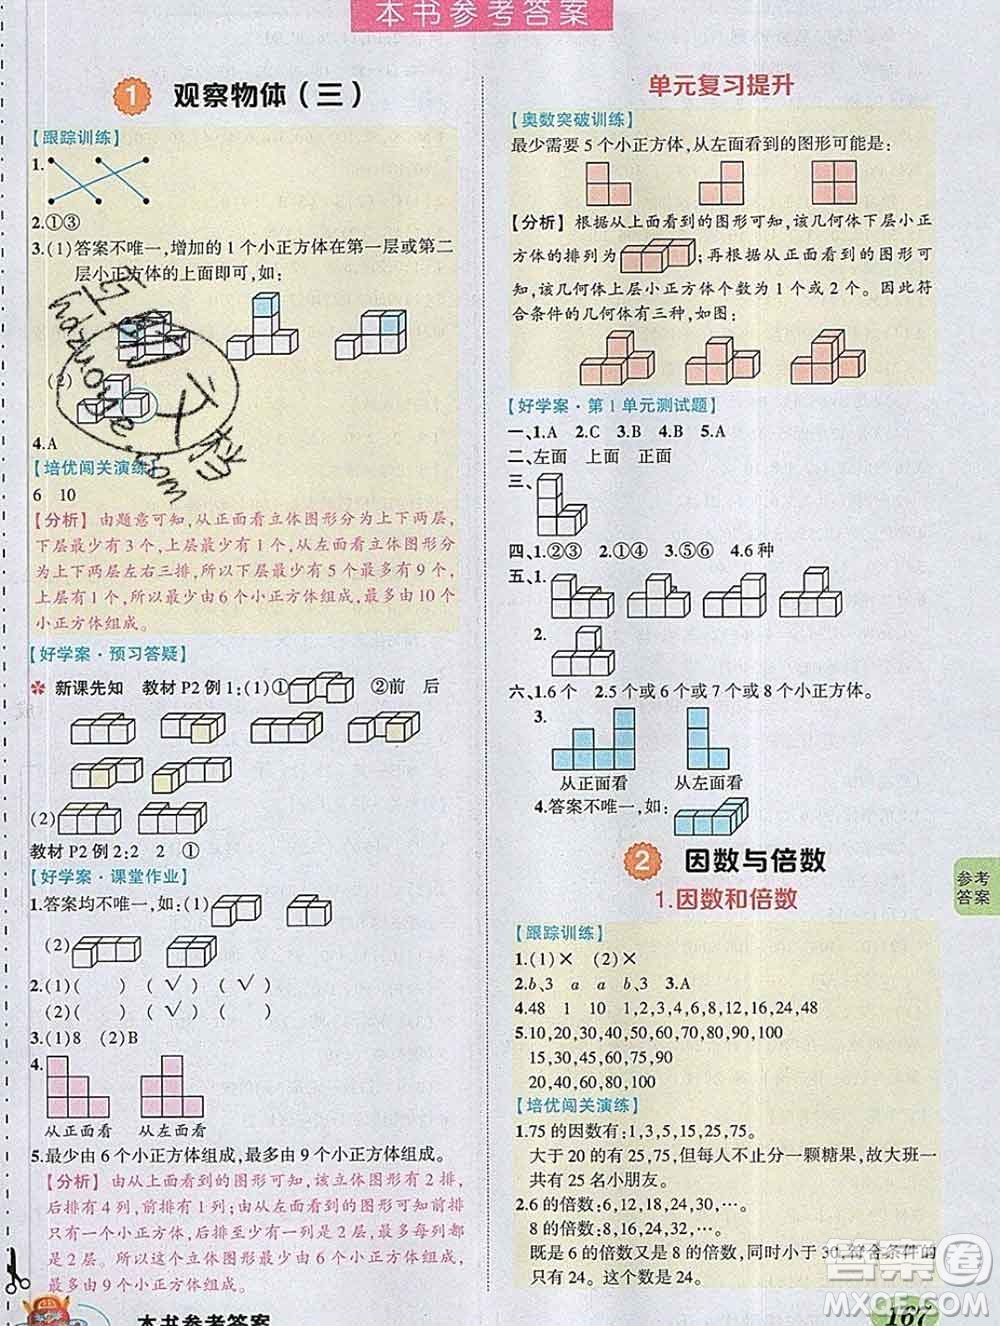 本书参考答案
1 观察物体(三)
【跟踪训练】
1.
2.①③
3.(1)答案不唯一,增加的1个小正方体在第一层或第二
层小正方体的上面即可,如:
(2)
4.A
【培优闯关演练】
6 10
【分析】 由题意可知,从正面看立体图形分为上下两层,
下层最少有3个,上层最少有1个,从左面看立体图形分
为上下两层左右三排,所以下层最多有9个,
上层有1个,所以最少由6个小正方体组成,最多由10个
小正方体组成。
【好学案·预习答疑】
新课先知 教材P2例1:(1)① ②前 后
(2)
教材P2例2:2 2 ①
【好学案·课堂作业】
1.答案均不唯一,如:(1)
(2)
2.(1)( ) (√) (√)
(2)( ) (√) ( )
3.(1)8 (2)B
4.
从正面看 从左面看
5.最少由6个小正方体组成,最多由9个小正方体组成。
【分析】 由从上面看到的图形可知,该立体图形有2排,
后排有4列,前排有1列;由从前面看到的图形可知前排
只有一个小正方体,后排至少有一列是2层,最多每列都
是2层。所以这个立体图形最少由6个小正方体组成,
最多由9个小正方体组成。
本书参考答案
单元复习提升
【奥数突破训练】
最少需要5个小正方体,从左面看到的图形可能是:
【分析】 根据从上面看到的图形可知,该几何体下层小正
方体的排列为 ;再由从正面看到的图形可
知,该几何体上层小正方体个数为1个或2个。因此符
合条件的几何体有三种,如图:
【好学案·第1单元测试题】
一、1.A 2.C 3.B 4.B 5.A
二、左面 上面 正面
三、
四、1.②③ 2.①④ 3.⑤⑥ 4.6种
五、1.
2.
六、1.6个 2.5个或6个或7个或8个小正方体。
3.
从正面看 从左面看
4.答案不唯一,如:
2 因数与倍数
1.因数和倍数
【跟踪训练】
1.(1)× (2)×
2.b、3 a a 3 3.A
4.48 1 10 1,2,3,4,6,8,12,16,24,48
5.10,20,30,40,50,60,70,80,90,100
15,30,45,60,75,90
20,40,60,80,100
【培优闯关演练】
1.75的因数有:1,3,5,15,25,75。
大于20的有25,75,但每人不足一颗糖果,故大班一
共有25名小朋友。
2.6的倍数:6,12,18,24,30,…。
8的倍数:8,16,24,32,…。
既是6的倍数又是8的倍数,同时小于30,符合条件的
只有24。这个数是24。
参考
答案
答案圈
MXQE.COM
167